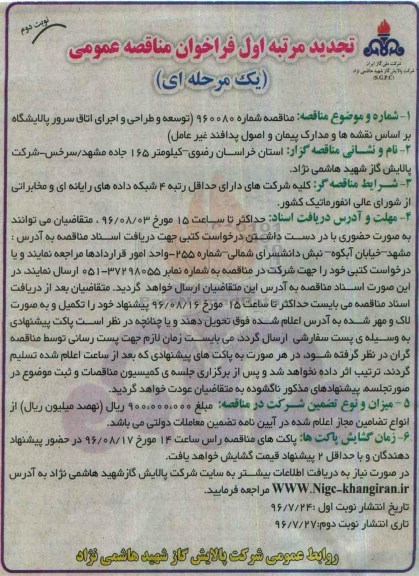 نوبت دوم
تجدید مرتبه اول فراخوان مناقصه عمومی
(یک مرحله ای)
شرکت ملی گاز ایران
شرکت پالایش گاز شهید هاشمی نژاد
(S.G.P.C)
۱- شماره و موضوع مناقصه: مناقصه شماره ۹۶۰۰۸۰ (توسعه و طراحی و اجرای اتاق سرور پالایشگاه
بر اساس نقشه ها و مدارک پیمان و اصول پدافند غیر عامل)
۲- نام و نشانی مناقصه گزار: استان خراسان رضوی-کیلومتر ۱۶۵ جاده مشهد/سرخس-شرکت
پالایش گاز شهید هاشمی نژاد.
۳- شرایط مناقصه گر: کلیه شرکت های دارای حداقل رتبه ۴ شبکه داده های رایانه ای و مخابراتی
از شورای عالی انفورماتیک کشور.
۴- مهلت و آدرس دریافت اسناد: حداکثر تا ساعت ۱۵ مورخ ۹۶/۰۸/۰۳ ، متقاضیان می توانند
به صورت حضوری با در دست داشتن درخواست کتبی جهت دریافت اسناد مناقصه به آدرس :
مشهد-خیابان آبکوه- نبش دانشسرای شمالی-شماره ۲۵۵-واحد امور قراردادها مراجعه نمایند و یا
درخواست کتبی خود را جهت شرکت در مناقصه به شماره نمابر ۳۷۲۹۸۰۵۵-۰۵۱ ارسال نمایند، در
این صورت اسناد مناقصه به آدرس این متقاضیان ارسال خواهد گردید. متقاضیان بعد از دریافت
اسناد مناقصه می بایست حداکثر تا ساعت ۱۵ مورخ ۹۶/۰۸/۱۶ پیشنهاد خود را تکمیل و به صورت
لاک و مهر شده به آدرس اعلام شده فوق تحویل دهند و یا چنانچه در نظر است پاکت پیشنهادی
به وسیله ی پست سفارشی ارسال گردد، می بایست زمان لازم جهت پست رسانی توسط مناقصه
گران در نظر گرفته شود، در هر صورت به پاکت های پیشنهادی که بعد از ساعت اعلام شده تسلیم
گردند، ترتیب اثر داده نخواهد شد و پس از برگزاری جلسه ی کمیسیون مناقصات و ثبت موضوع در
صورتجلسه، پیشنهادهای مذکور ناگشوده به متقاضیان عودت خواهد گردید.
۵- میزان و نوع تضمین شرکت در مناقصه: مبلغ ۹۰۰،۰۰۰،۰۰۰ ریال (نهصد میلیون ریال) از
انواع تضامین مجاز اعلام شده در آیین نامه تضمین معاملات دولتی می باشد.
۶- زمان گشایش پاکت ها: پاکت های مناقصه راس ساعت ۱۴ مورخ ۹۶/۰۸/۱۷ در حضور پیشنهاد
دهندگان و با حداقل ۲ پیشنهاد قیمت گشایش خواهد یافت.
در صورت نیاز به دریافت اطلاعات بیشتر به سایت شرکت پالایش گازشهید هاشمی نژاد به آدرس
WWW.Nigc-khangiran.ir مراجعه فرمایید.
تاریخ انتشار نوبت اول :۹۶/۷/۲۴
تاری انتشار نوبت دوم:۹۶/۷/۲۷
روابط عمومی شرکت پالایش گاز شهید هاشمی نژاد